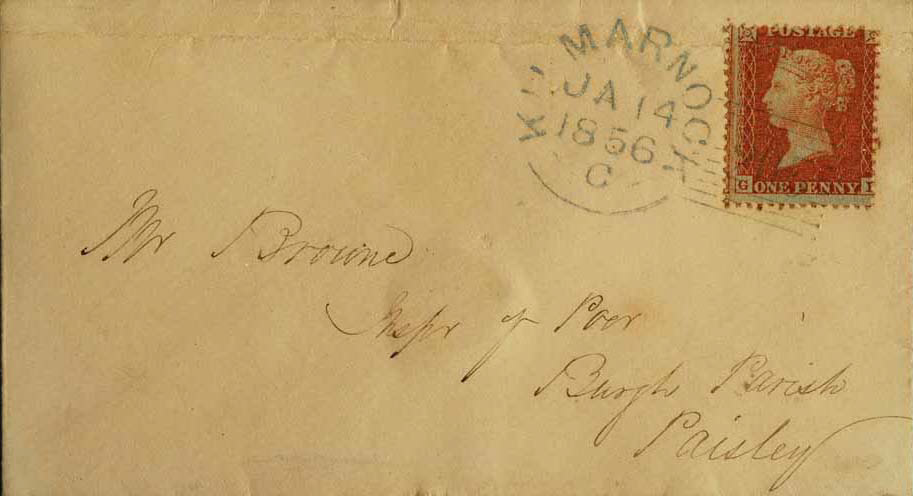 KILMARNOCK
JA 14
1856
C
POSTAGE
G ONE PENNY I
Mr Browne
Inspr of Poor
Burgh Parish
Paisley